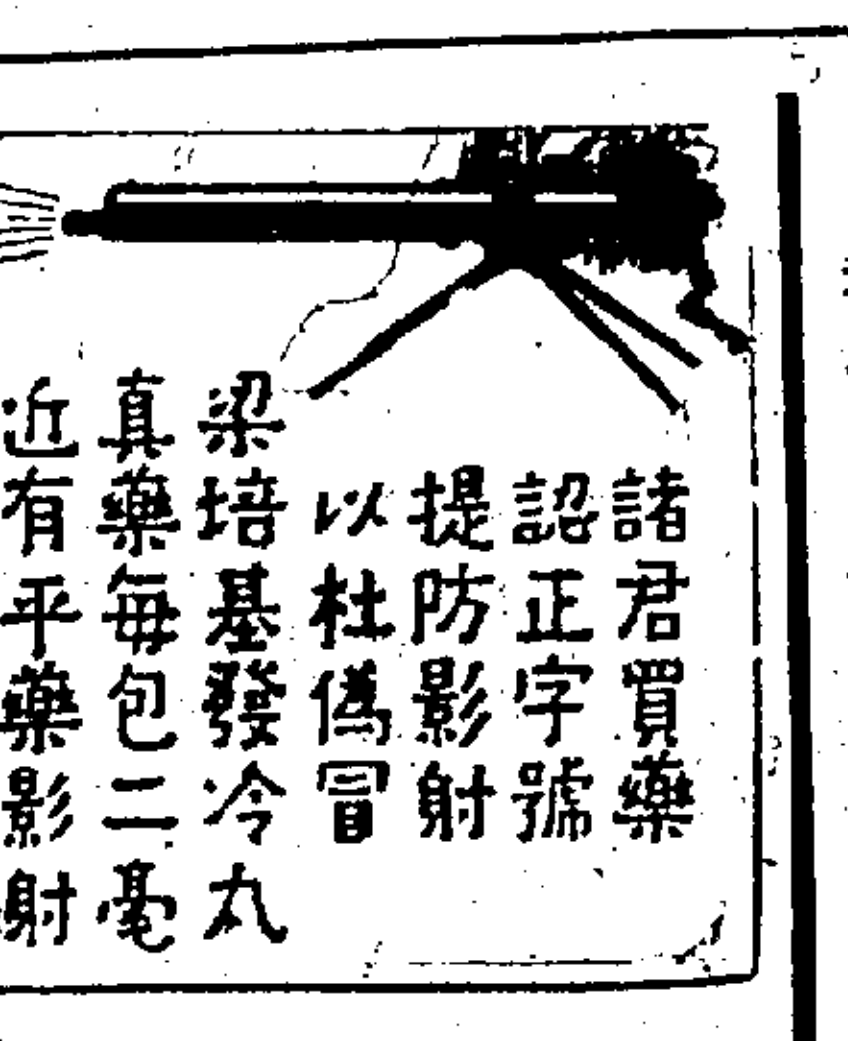 諸君買藥
認正字號
提防影射
以杜偽冒
梁培基發冷丸
真藥每包二毫
近有平藥影射